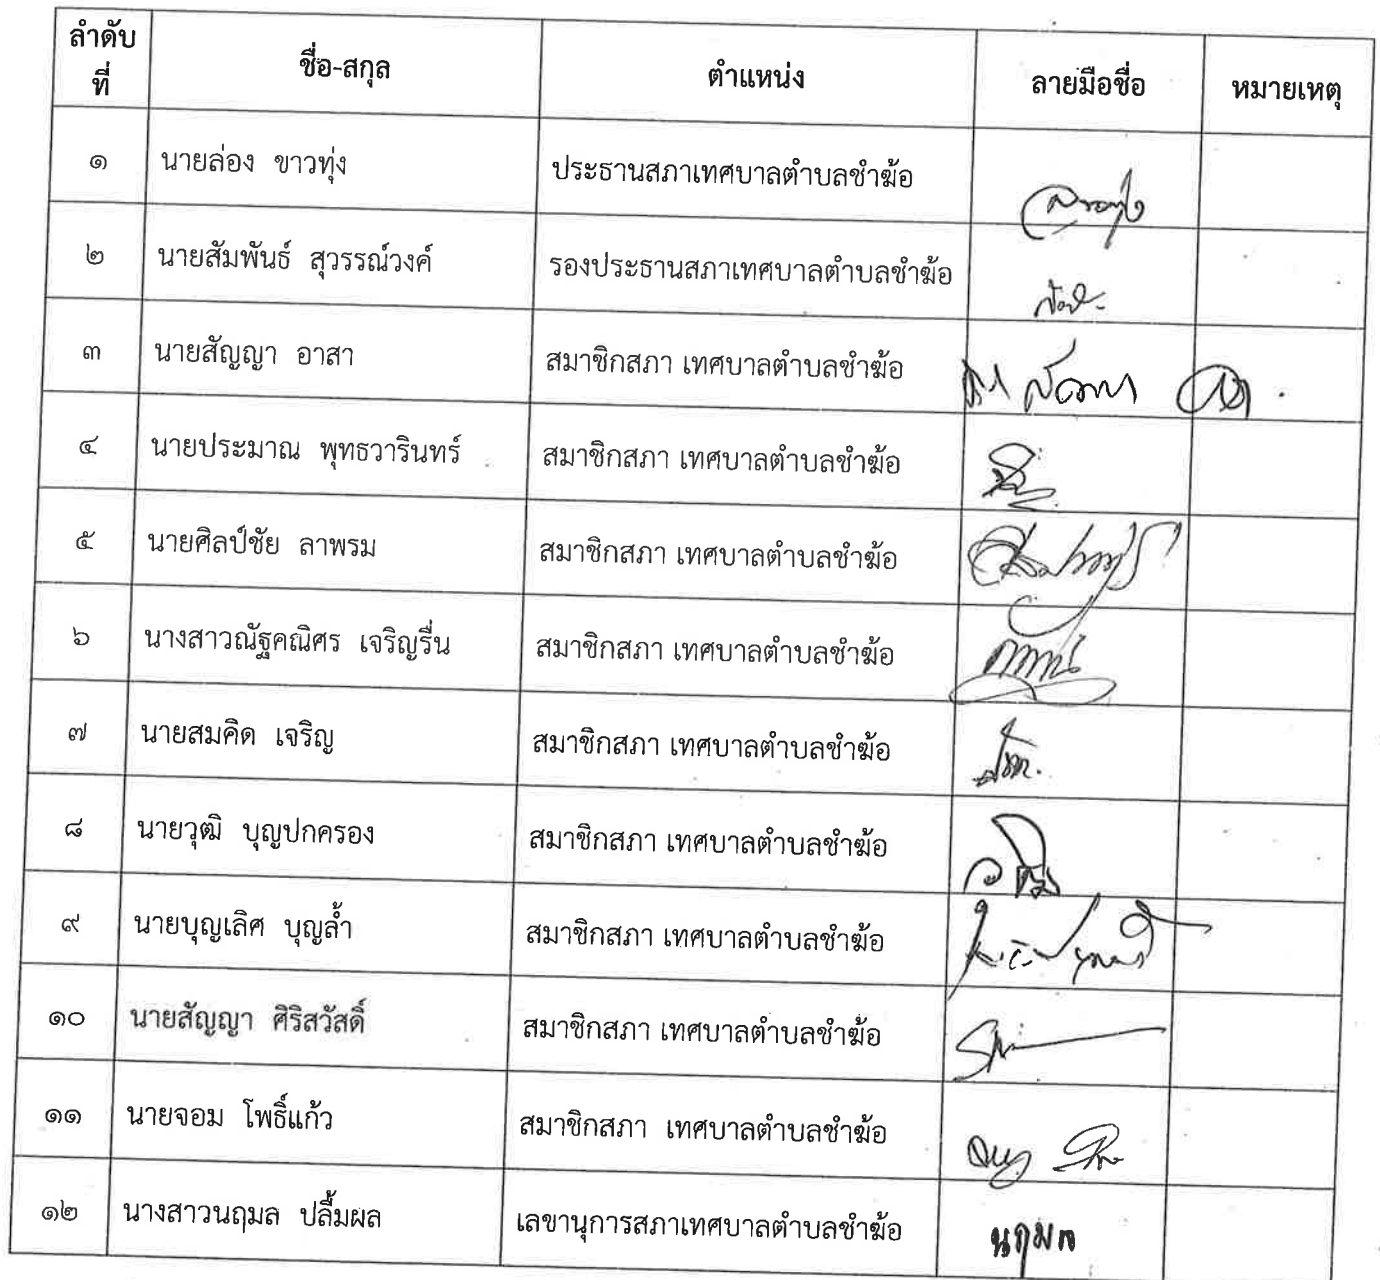 ลำดับ
ที่
ชื่อ-สกุล
ตำแหน่ง
ลายมือชื่อ
หมายเหตุ
๑ นายล่อง ขาวทุ่ง ประธานสภาเทศบาลตำบลชำฆ้อ
๒ นายสัมพันธ์ สุวรรณ์วงค์ รองประธานสภาเทศบาลตำบลชำฆ้อ
๓ นายสัญญา อาสา สมาชิกสภา เทศบาลตำบลชำฆ้อ
๔ นายประมาณ พุทธวารินทร์ สมาชิกสภา เทศบาลตำบลชำฆ้อ
๕ นายศิลป์ชัย ลาพรม สมาชิกสภา เทศบาลตำบลชำฆ้อ
๖ นางสาวณัฐคณิศร เจริญรื่น สมาชิกสภา เทศบาลตำบลชำฆ้อ
๗ นายสมคิด เจริญ สมาชิกสภา เทศบาลตำบลชำฆ้อ
๘ นายวุฒิ บุญปกครอง สมาชิกสภา เทศบาลตำบลชำฆ้อ
๙ นายบุญเลิศ บุญล้ำ สมาชิกสภา เทศบาลตำบลชำฆ้อ
๑๐ นายสัญญา ศิริสวัสดิ์ สมาชิกสภา เทศบาลตำบลชำฆ้อ
๑๑ นายจอม โพธิ์แก้ว สมาชิกสภา เทศบาลตำบลชำฆ้อ
๑๒ นางสาวนฤมล ปลื้มผล เลขานุการสภาเทศบาลตำบลชำฆ้อ นฤมล